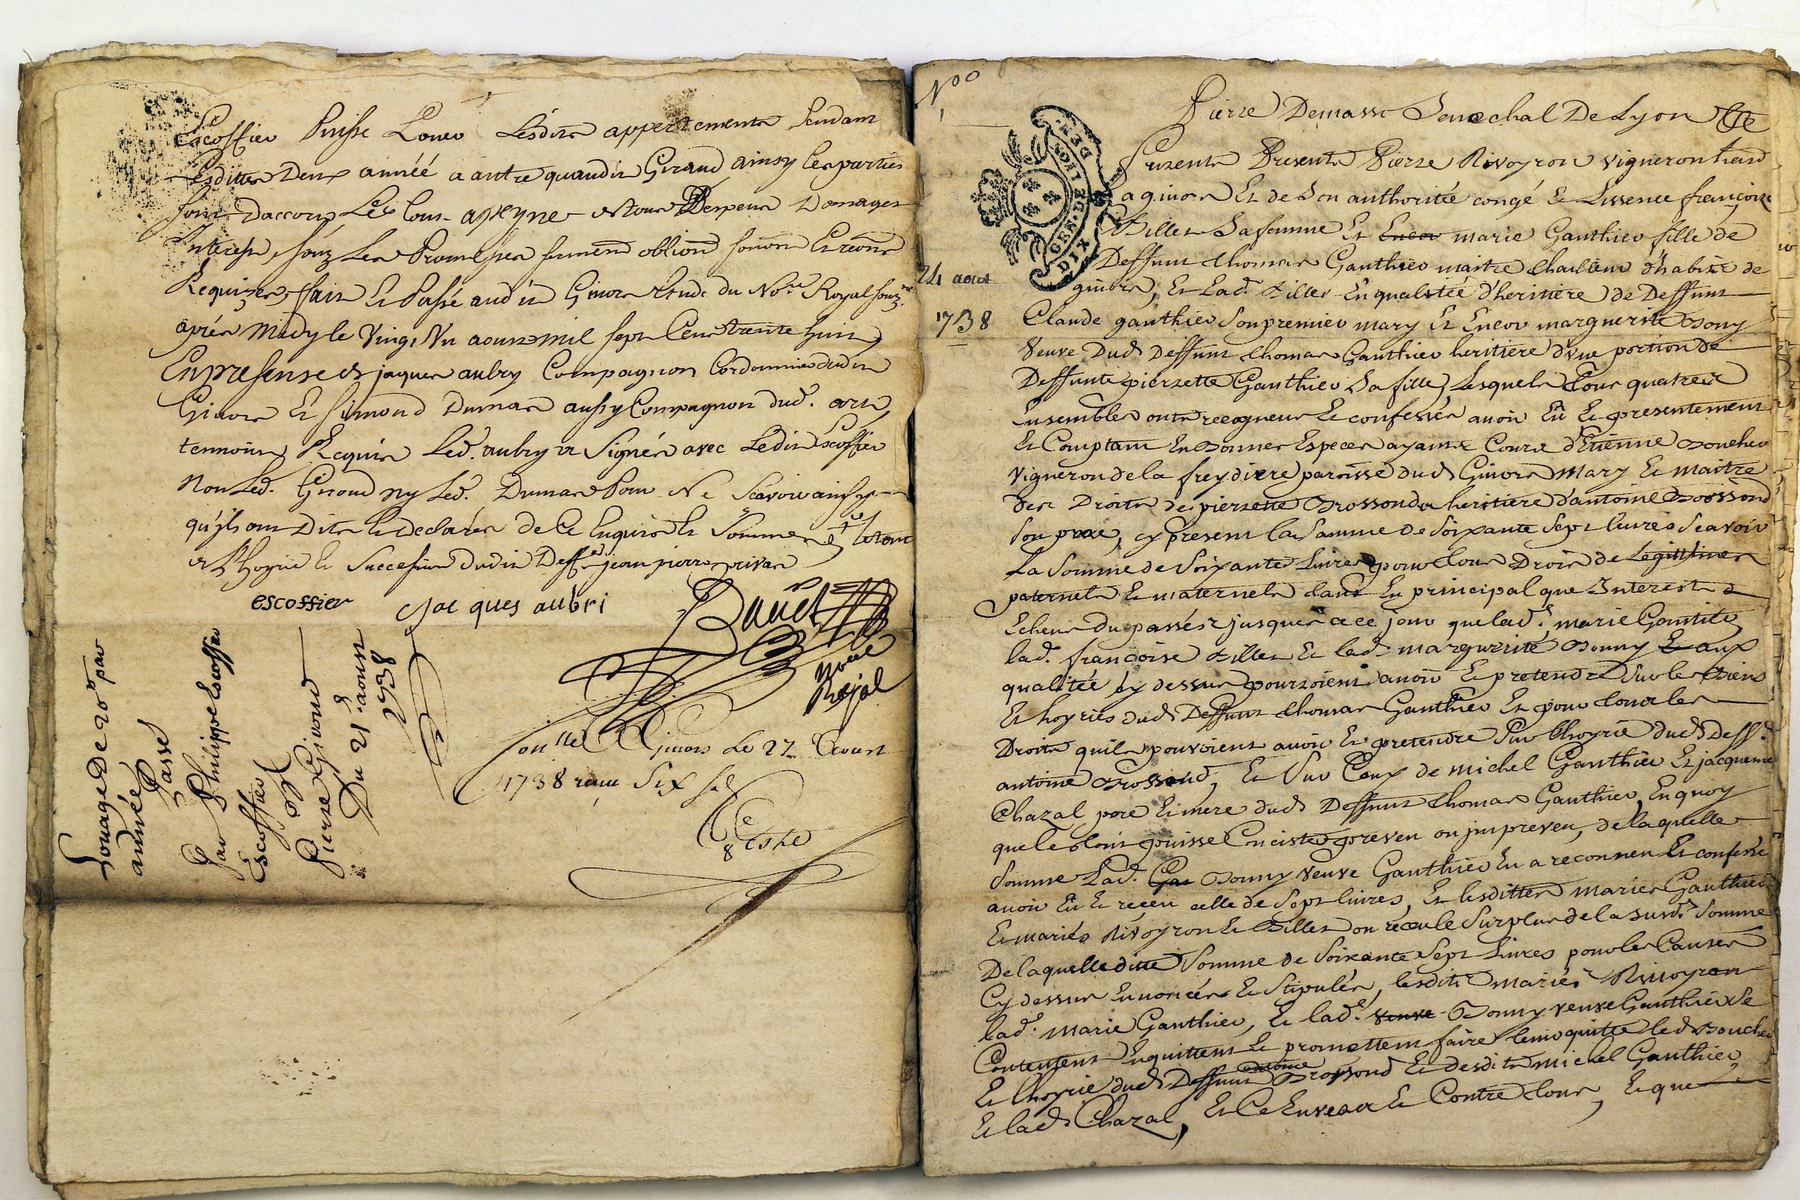 Escoffier puisse Louer Lesdits appartements pendant
Lesdittes Deux année a autre quaudit Giraud ainsy les parties
sont Daccord Le tout apeyne Despens Domages
Interest, souz Les Promesses serment
Requizes, fait Et Passé audit Givors Etude du No.re Royal souz.né
aprés Midy le Vingt Un aoust mil sept Cent trente huit
En presense de jaques aubry Compagnon Cordonnier dudit
Givors Et simond Dumas aussy Compagnon dud. art
temoins Requis Led. aubry a signés avec Ledit Escoffier
Non Led. Giroud ny Led. Dumas Pour Ne scavoir ainsy
qu'ils ont Dits Et declarés de Ce Enquis Et Sommés
et L'hoyrie Et Succession dudit Deff. jean pierre privas
escoffier jacques aubri
No.re
Royal
Con.llé A Givors Le 22 aoust
1738 reçu Six s.
Louage De 20 par
année
Passé
Par Philippe Escoffier
Escoffier
à
Pierre Giroud
Du 21 aoust
1738
N°°
DIX DEN.
24 aout
1738
Pierre Demasso Senechal De Lyon
Presents Pierre Rivoyron vigneron
a givors Et de Son authoritée congé Et Lissence françoise
Tillet Sa femme Et Encor marie Gauthier fille de
Deffunt thomas Gauthier maitre d'habits de
givors, Et Lad. Tillet En qualitée d'heritiere de Deffunt
Claude gauthier Son premier mary Et Encor marguerite Bony
Veuve Dud. Deffunt thomas Gauthier heritiere d'une portion de
Deffunte pierrette Gauthier Sa fille, Lesquels tous quatre
Ensembles ont recogneus Et confessés avoir Eû Et presentement
Et Comptant En Bonnes Especes ayants Cours d'Etienne Boucher
Vigneron de la freydiere paroisse dud. Givors Mary Et maitre
des Droits de pierrette Brossond heritiere d'antoine Brossond
Son pere, cy present la Somme de Soixante Sept Livres Scavoir
La Somme de Soixante Livres pour tous Droits de Legitimes
paternels Et maternels tant En principal que Interests
Echeus du passés jusques a ce jour que lad. marie Gautier,
lad. françoise Tillet Et lad. marguerite Bonny Et aux
qualitée cy dessus pourroient avoir Et pretendre Sur les Biens
Et hoyries dud. Deffunt thomas Gauthier Et pour tous les
Droits quils pouvoient avoir Et pretendre Sur Lhoyrie dud. Deff.t
antoine Brossond, Et Sur Ceux de michel Gauthier Et jacqueme
Chazal pere Et mere dud. Deffunt thomas Gauthier, En quoy
que le tout puisse Concister preveu ou jmpreveu, de laquelle
Somme Lad. Gau Bonny Veuve Gauthier En a reconneu Et confessé
avoir Eû Et reçeu celle de Sept livres, Et lesdittes maries Gauthier
Et mariés Rivoyron Et Tillet on réceu le Surplus de la Susd. Somme
De laquelle ditte Somme de Soixante Sept Livres pour les Causes
Cy dessus Ennoncées Et Stipulés, lesdits mariés Rivoyron
lad. marie Gauthier, Et lad. veuve Bonny veuve Gauthier Se
Contentent Enquittent Et promettent faire tenir quitte led. Boucher
Et Lhoyrie dud. Deffunt antoine Brossond Et desdits michel Gauthier
Et lad. Chazal, Et Ce Envers Et Contre tous, Et que